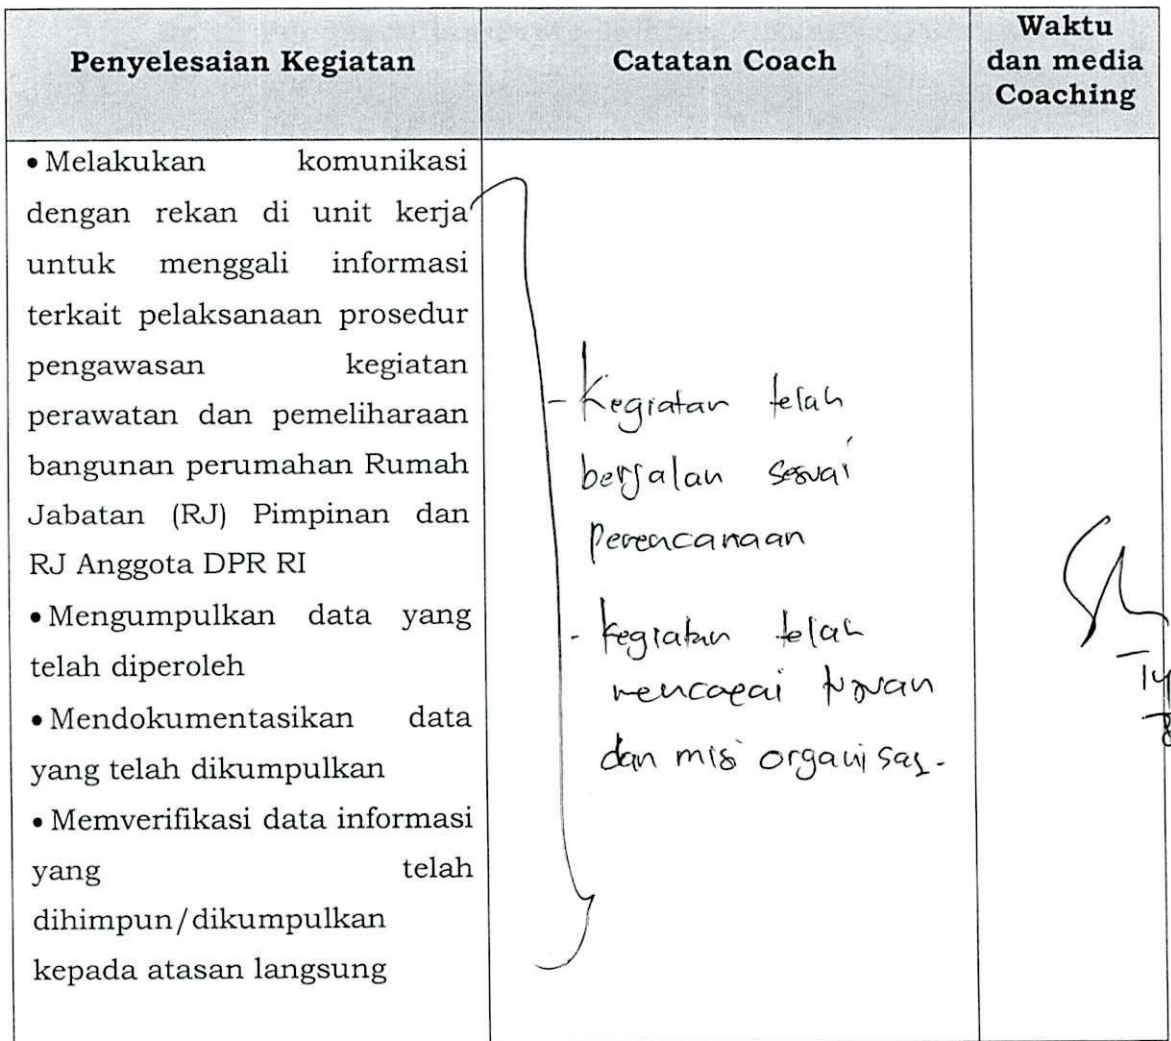 Penyelesaian Kegiatan
Catatan Coach
Waktu
dan media
Coaching
• Melakukan komunikasi
dengan rekan di unit kerja
untuk menggali informasi
terkait pelaksanaan prosedur
pengawasan kegiatan
perawatan dan pemeliharaan
bangunan perumahan Rumah
Jabatan (RJ) Pimpinan dan
RJ Anggota DPR RI
• Mengumpulkan data yang
telah diperoleh
• Mendokumentasikan data
yang telah dikumpulkan
• Memverifikasi data informasi
yang telah
dihimpun/dikumpulkan
kepada atasan langsung
- Kegiatan telah
berjalan sesuai
Perencanaan
- Kegiatan telah
mencapai tujuan
dan misi organisasi.